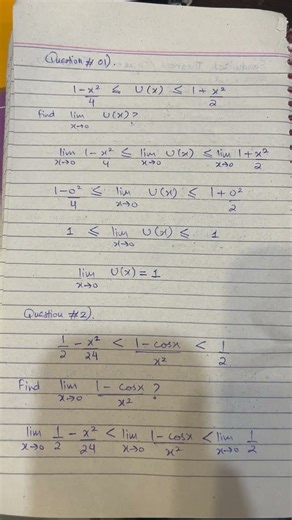 Question # 01).
1 - x²/4 ≤ U(x) ≤ 1 + x²/2
Find lim x→0 U(x)?
lim x→0 1 - x²/4 ≤ lim x→0 U(x) ≤ lim x→0 1 + x²/2
1 - 0²/4 ≤ lim x→0 U(x) ≤ 1 + 0²/2
1 ≤ lim x→0 U(x) ≤ 1
lim x→0 U(x) = 1
Question #2).
1/2 - x²/24 < 1 - cosx/x² < 1/2
Find lim x→0 1 - cosx/x² ?
lim x→0 1/2 - x²/24 < lim x→0 1 - cosx/x² < lim x→0 1/2